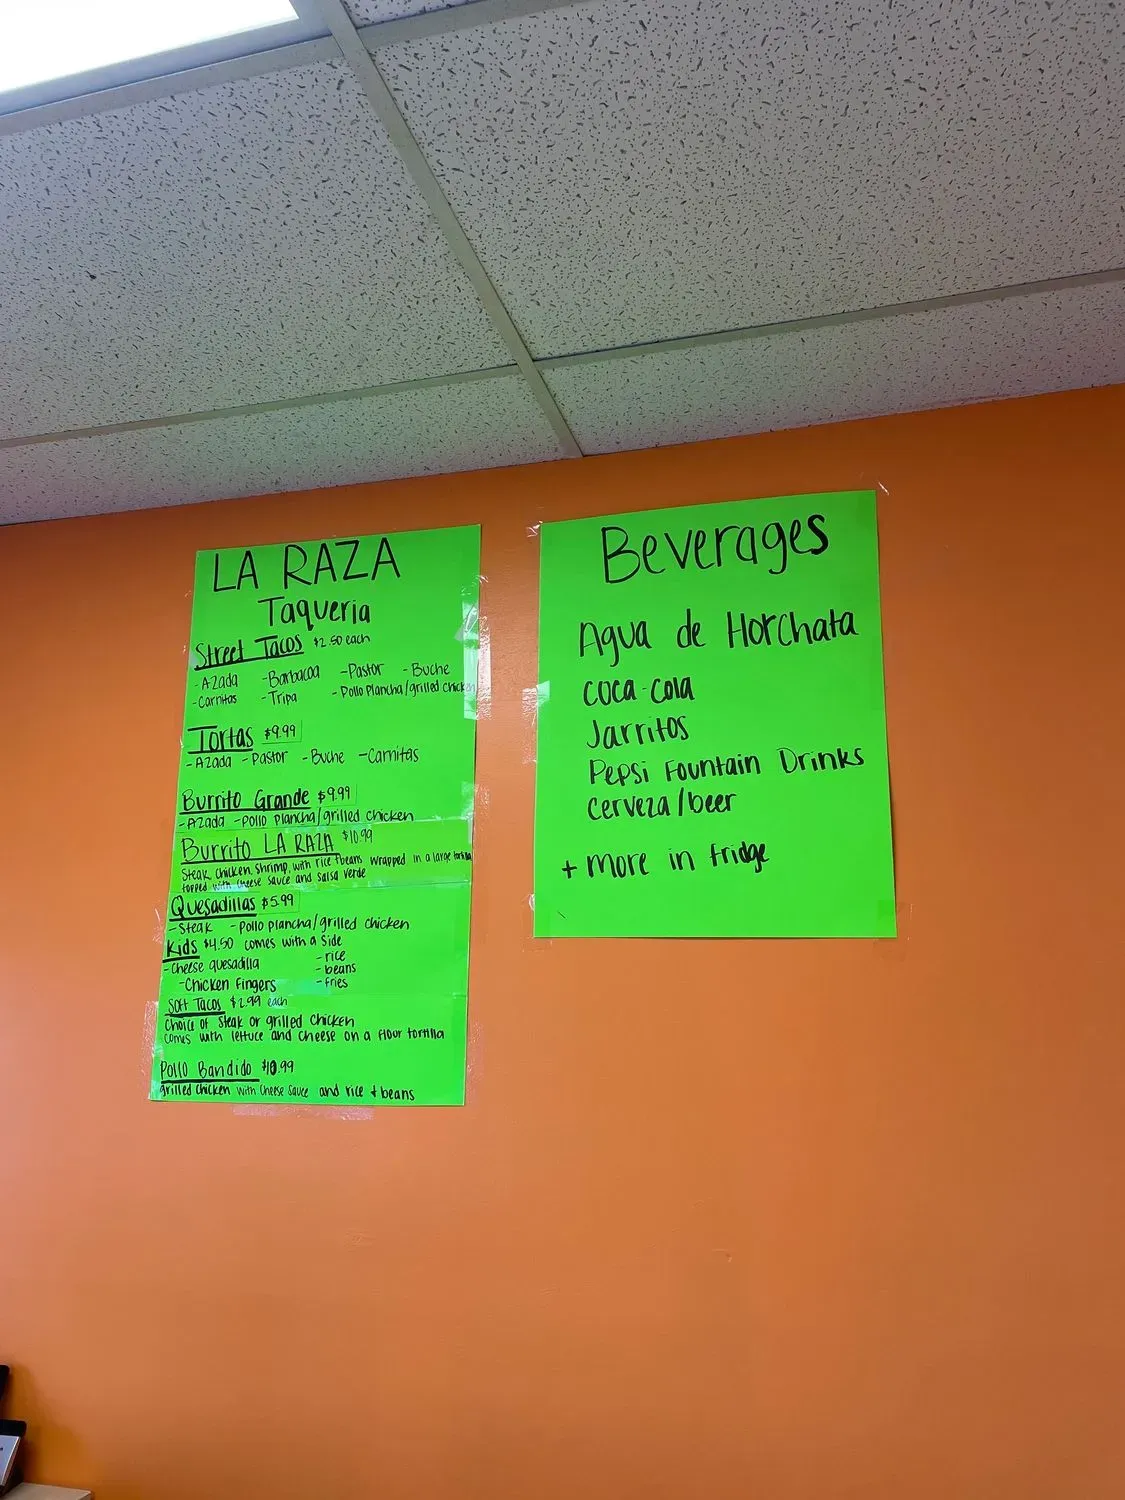 LA RAZA
Taqueria
Street Tacos $2.50 each
- Azada - Barbacoa - Pastor - Buche
- Carnitas - Tripa - Pollo Plancha/grilled chicken
Tortas $9.99
- Azada - Pastor - Buche - Carnitas
Burrito Grande $9.99
- Azada - Pollo Plancha/grilled chicken
Burrito LA RAZA $10.99
Steak, chicken, shrimp, with rice + beans wrapped in a large tortilla
topped with cheese sauce and salsa verde
Quesadillas $5.99
- Steak - Pollo plancha/grilled chicken
Kids $4.50 comes with a side
- cheese quesadilla - rice
- Chicken Fingers - beans
- fries
Soft Tacos $2.99 each
Choice of steak or grilled chicken
comes with lettuce and cheese on a flour tortilla
Pollo Bandido $10.99
grilled chicken with cheese sauce and rice + beans
Beverages
Agua de Horchata
Coca-Cola
Jarritos
Pepsi Fountain Drinks
Cerveza/beer
+ more in fridge